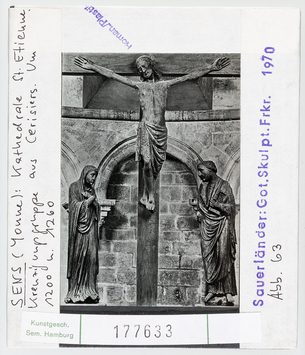 SENS (Yonne): Kathedrale St. Etienne.
Kreuzigungsgruppe aus Cerisiers. Um
1200 u. 1260
Roman. Plastik
Sauerländer: Got. Skulpt. Frkr. 1970
Abb. 63
Kunstgesch.
Sem. Hamburg
177633